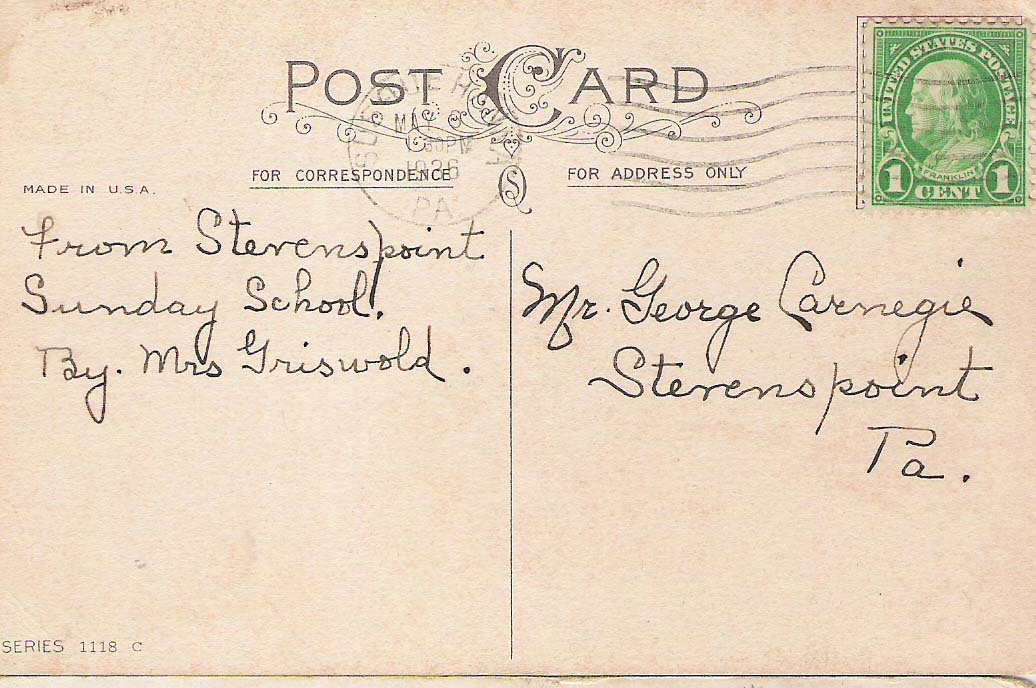 POST CARD
MAY
30PM
1926
PA
UNITED STATES POSTAGE
FRANKLIN
1 CENT 1
FOR CORRESPONDENCE
FOR ADDRESS ONLY
MADE IN U.S.A.
S
From Stevenspoint
Sunday School.
By. Mrs Griswold.
Mr. George Carnegie
Stevenspoint
Pa.
SERIES 1118 C